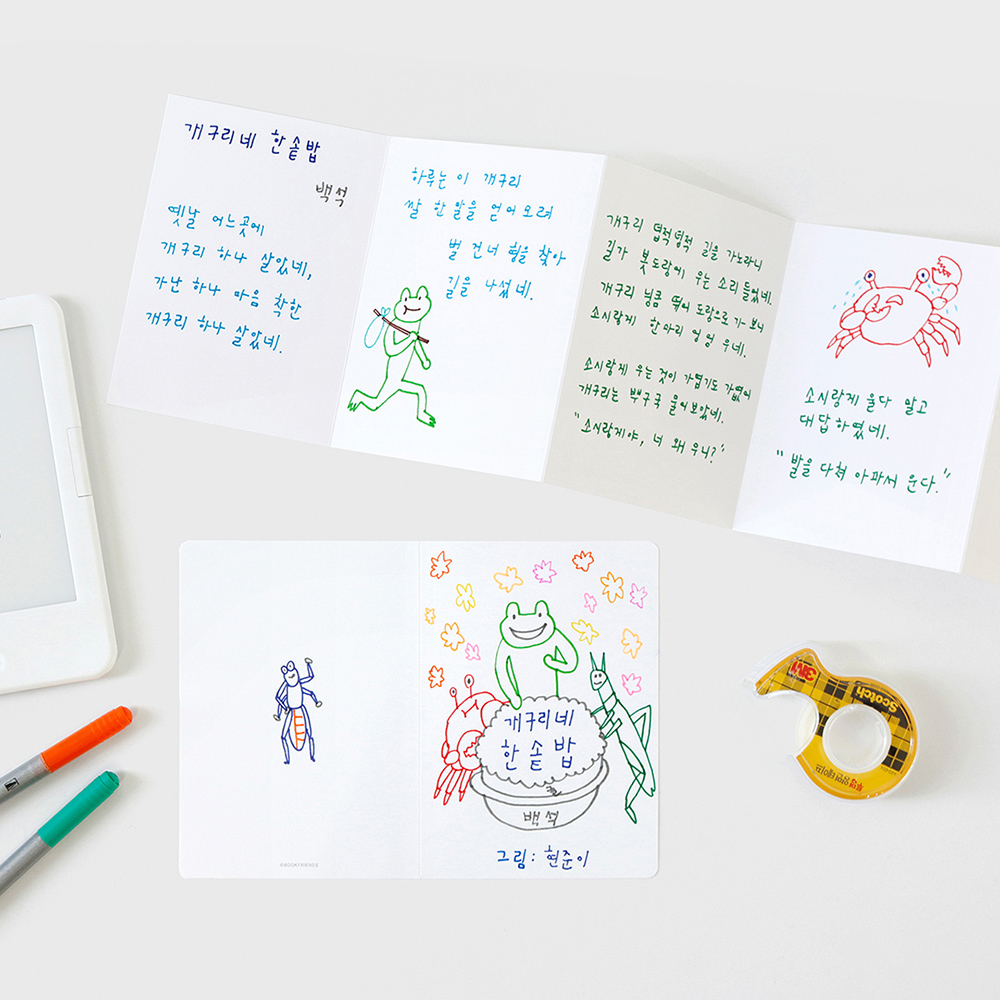 개구리네 한솥밥
백석
옛날 어느곳에
개구리 하나 살았네,
가난 하나 마음 착한
개구리 하나 살았네.
하루는 이 개구리
쌀 한 말을 얻어 오려
벌 건너 형을 찾아
길을 나섰네.
개구리 덥적덥적 길을 가노라니
길가 봇도랑에 우는 소리 들렸네.
개구리 닁큼 뛰어 도랑으로 가 보니
소시랑게 한마리 엉엉 우네.
소시랑게 우는 것이 가엽기도 가엾어
개구리는 뿌구국 물어보았네.
"소시랑게야, 너 왜 우니?"
소시랑게 울다 말고
대답하였네.
"발을 다쳐 아파서 운다."
개구리네
한솥밥
백석
그림: 현준이
©BOOKFRIENDS
3M
Scotch